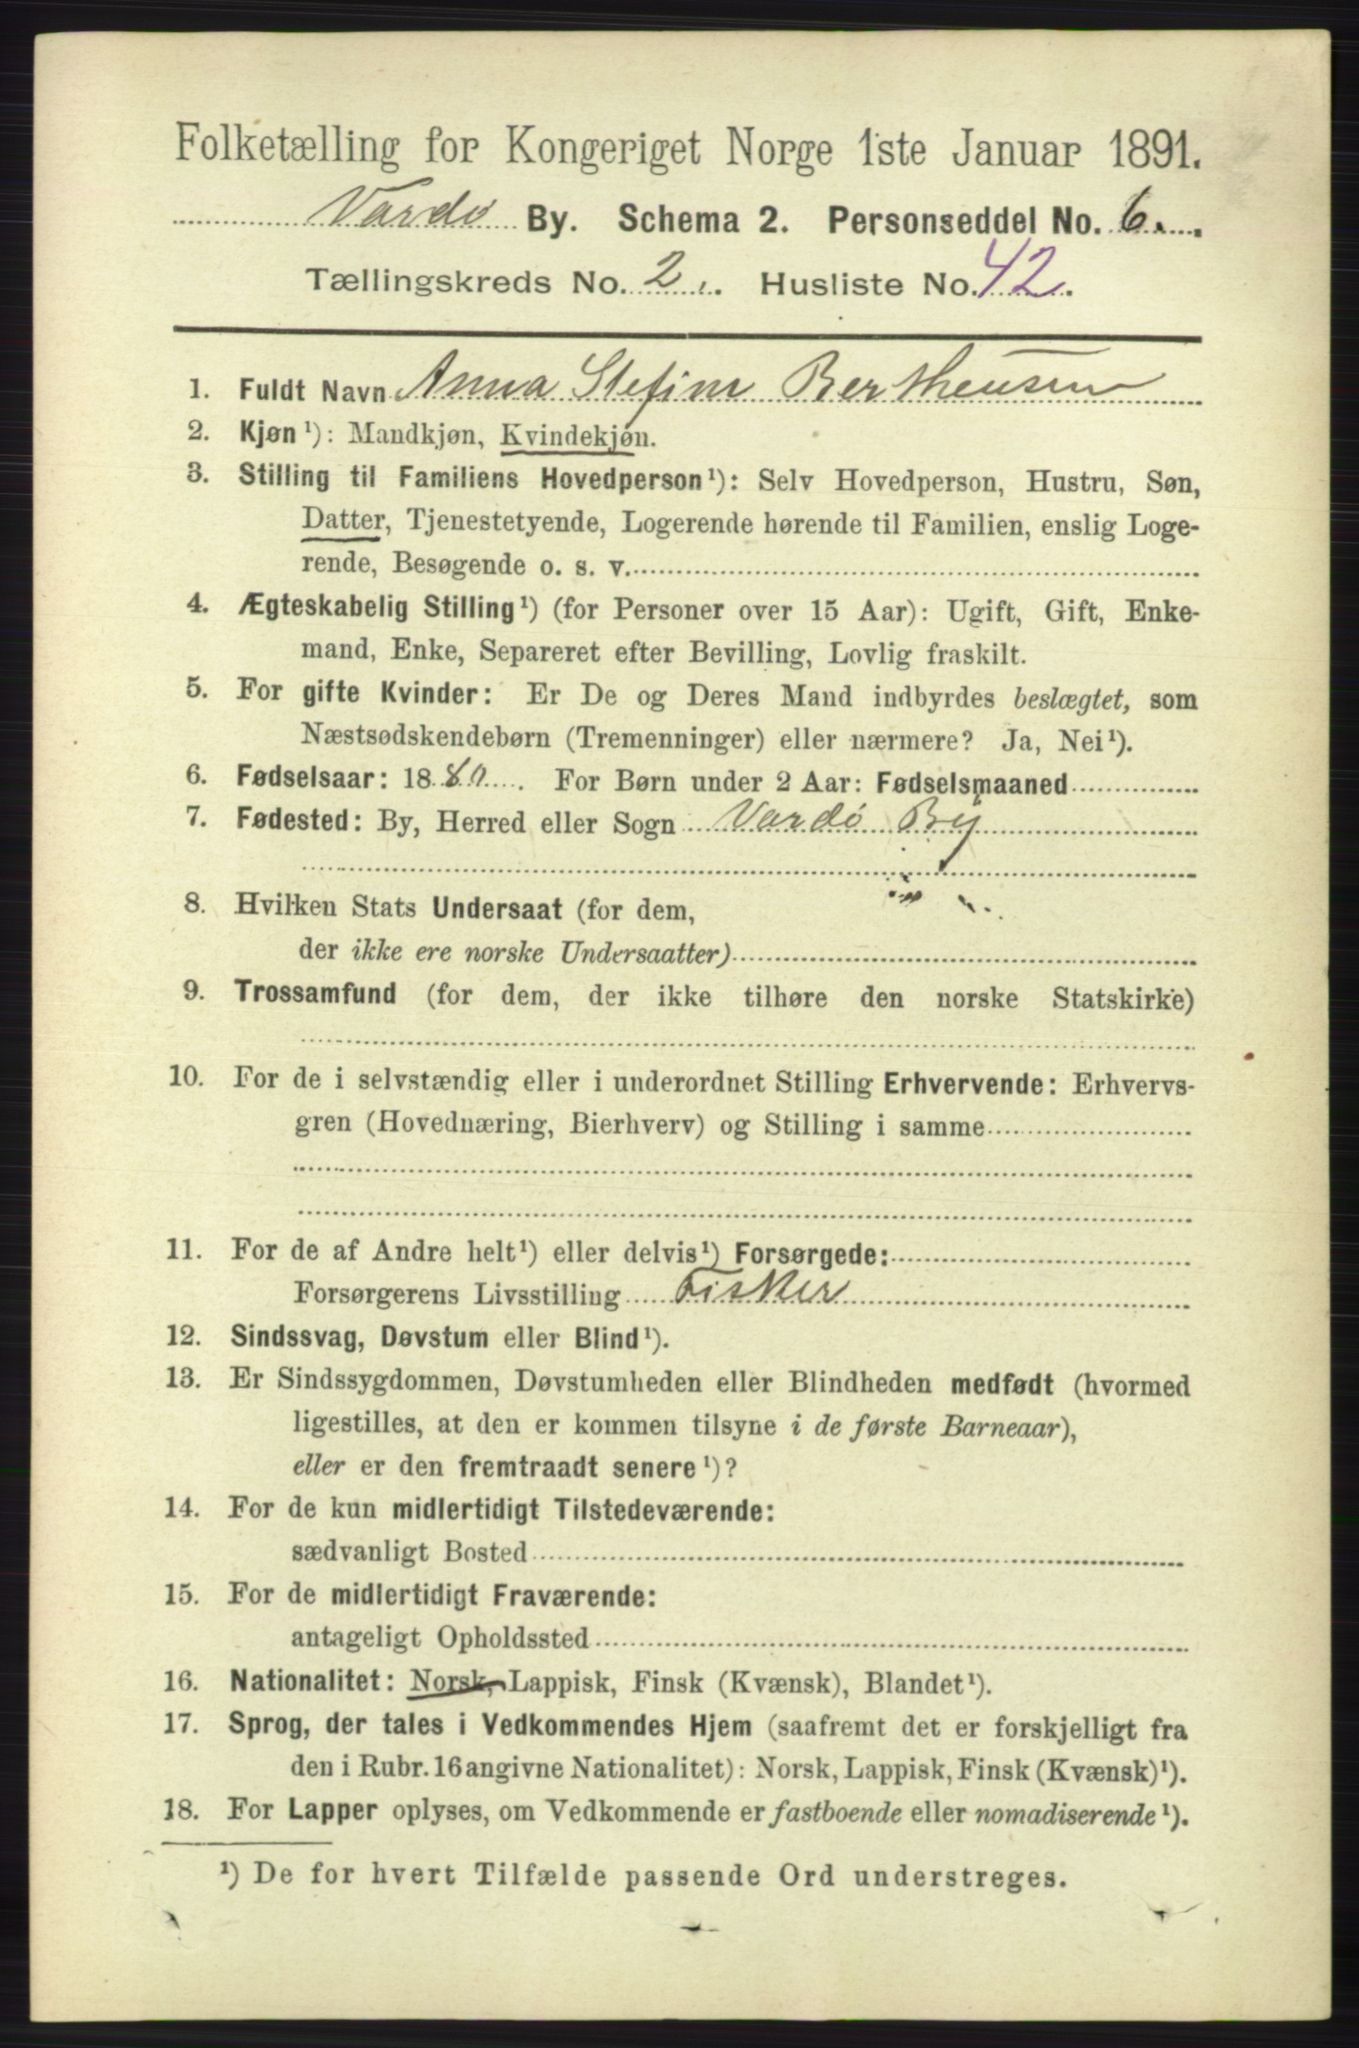 Folketælling for Kongeriget Norge 1ste Januar 1891.
Vardø By. Schema 2. Personseddel No. 6.
Tællingskreds No. 2. Husliste No. 42.
1. Fuldt Navn Anna Stefine Bertheusen
2. Kjøn ¹): Mandkjøn, Kvindekjøn.
3. Stilling til Familiens Hovedperson ¹): Selv Hovedperson, Hustru, Søn,
Datter, Tjenestetyende, Logerende hørende til Familien, enslig Loge-
rende, Besøgende o. s. v.
4. Ægteskabelig Stilling ¹) (for Personer over 15 Aar): Ugift, Gift, Enke-
mand, Enke, Separeret efter Bevilling, Lovlig fraskilt.
5. For gifte Kvinder: Er De og Deres Mand indbyrdes beslægtet, som
Næstsødskendebørn (Tremenninger) eller nærmere? Ja, Nei ¹).
6. Fødselsaar: 1880. For Børn under 2 Aar: Fødselsmaaned
7. Fødested: By, Herred eller Sogn Vardø By
8. Hvilken Stats Undersaat (for dem,
der ikke ere norske Undersaatter)
9. Trossamfund (for dem, der ikke tilhøre den norske Statskirke)
10. For de i selvstændig eller i underordnet Stilling Erhvervende: Erhvervs-
gren (Hovednæring, Bierhverv) og Stilling i samme
11. For de af Andre helt ¹) eller delvis ¹) Forsørgede:
Forsørgerens Livsstilling Fisker
12. Sindssvag, Døvstum eller Blind ¹).
13. Er Sindssygdommen, Døvstumheden eller Blindheden medfødt (hvormed
ligestilles, at den er kommen tilsyne i de første Barneaar),
eller er den fremtraadt senere ¹)?
14. For de kun midlertidigt Tilstedeværende:
sædvanligt Bosted
15. For de midlertidigt Fraværende:
antageligt Opholdssted
16. Nationalitet: Norsk, Lappisk, Finsk (Kvænsk), Blandet ¹).
17. Sprog, der tales i Vedkommendes Hjem (saafremt det er forskjelligt fra
den i Rubr. 16 angivne Nationalitet): Norsk, Lappisk, Finsk (Kvænsk) ¹).
18. For Lapper oplyses, om Vedkommende er fastboende eller nomadiserende ¹).
¹) De for hvert Tilfælde passende Ord understreges.